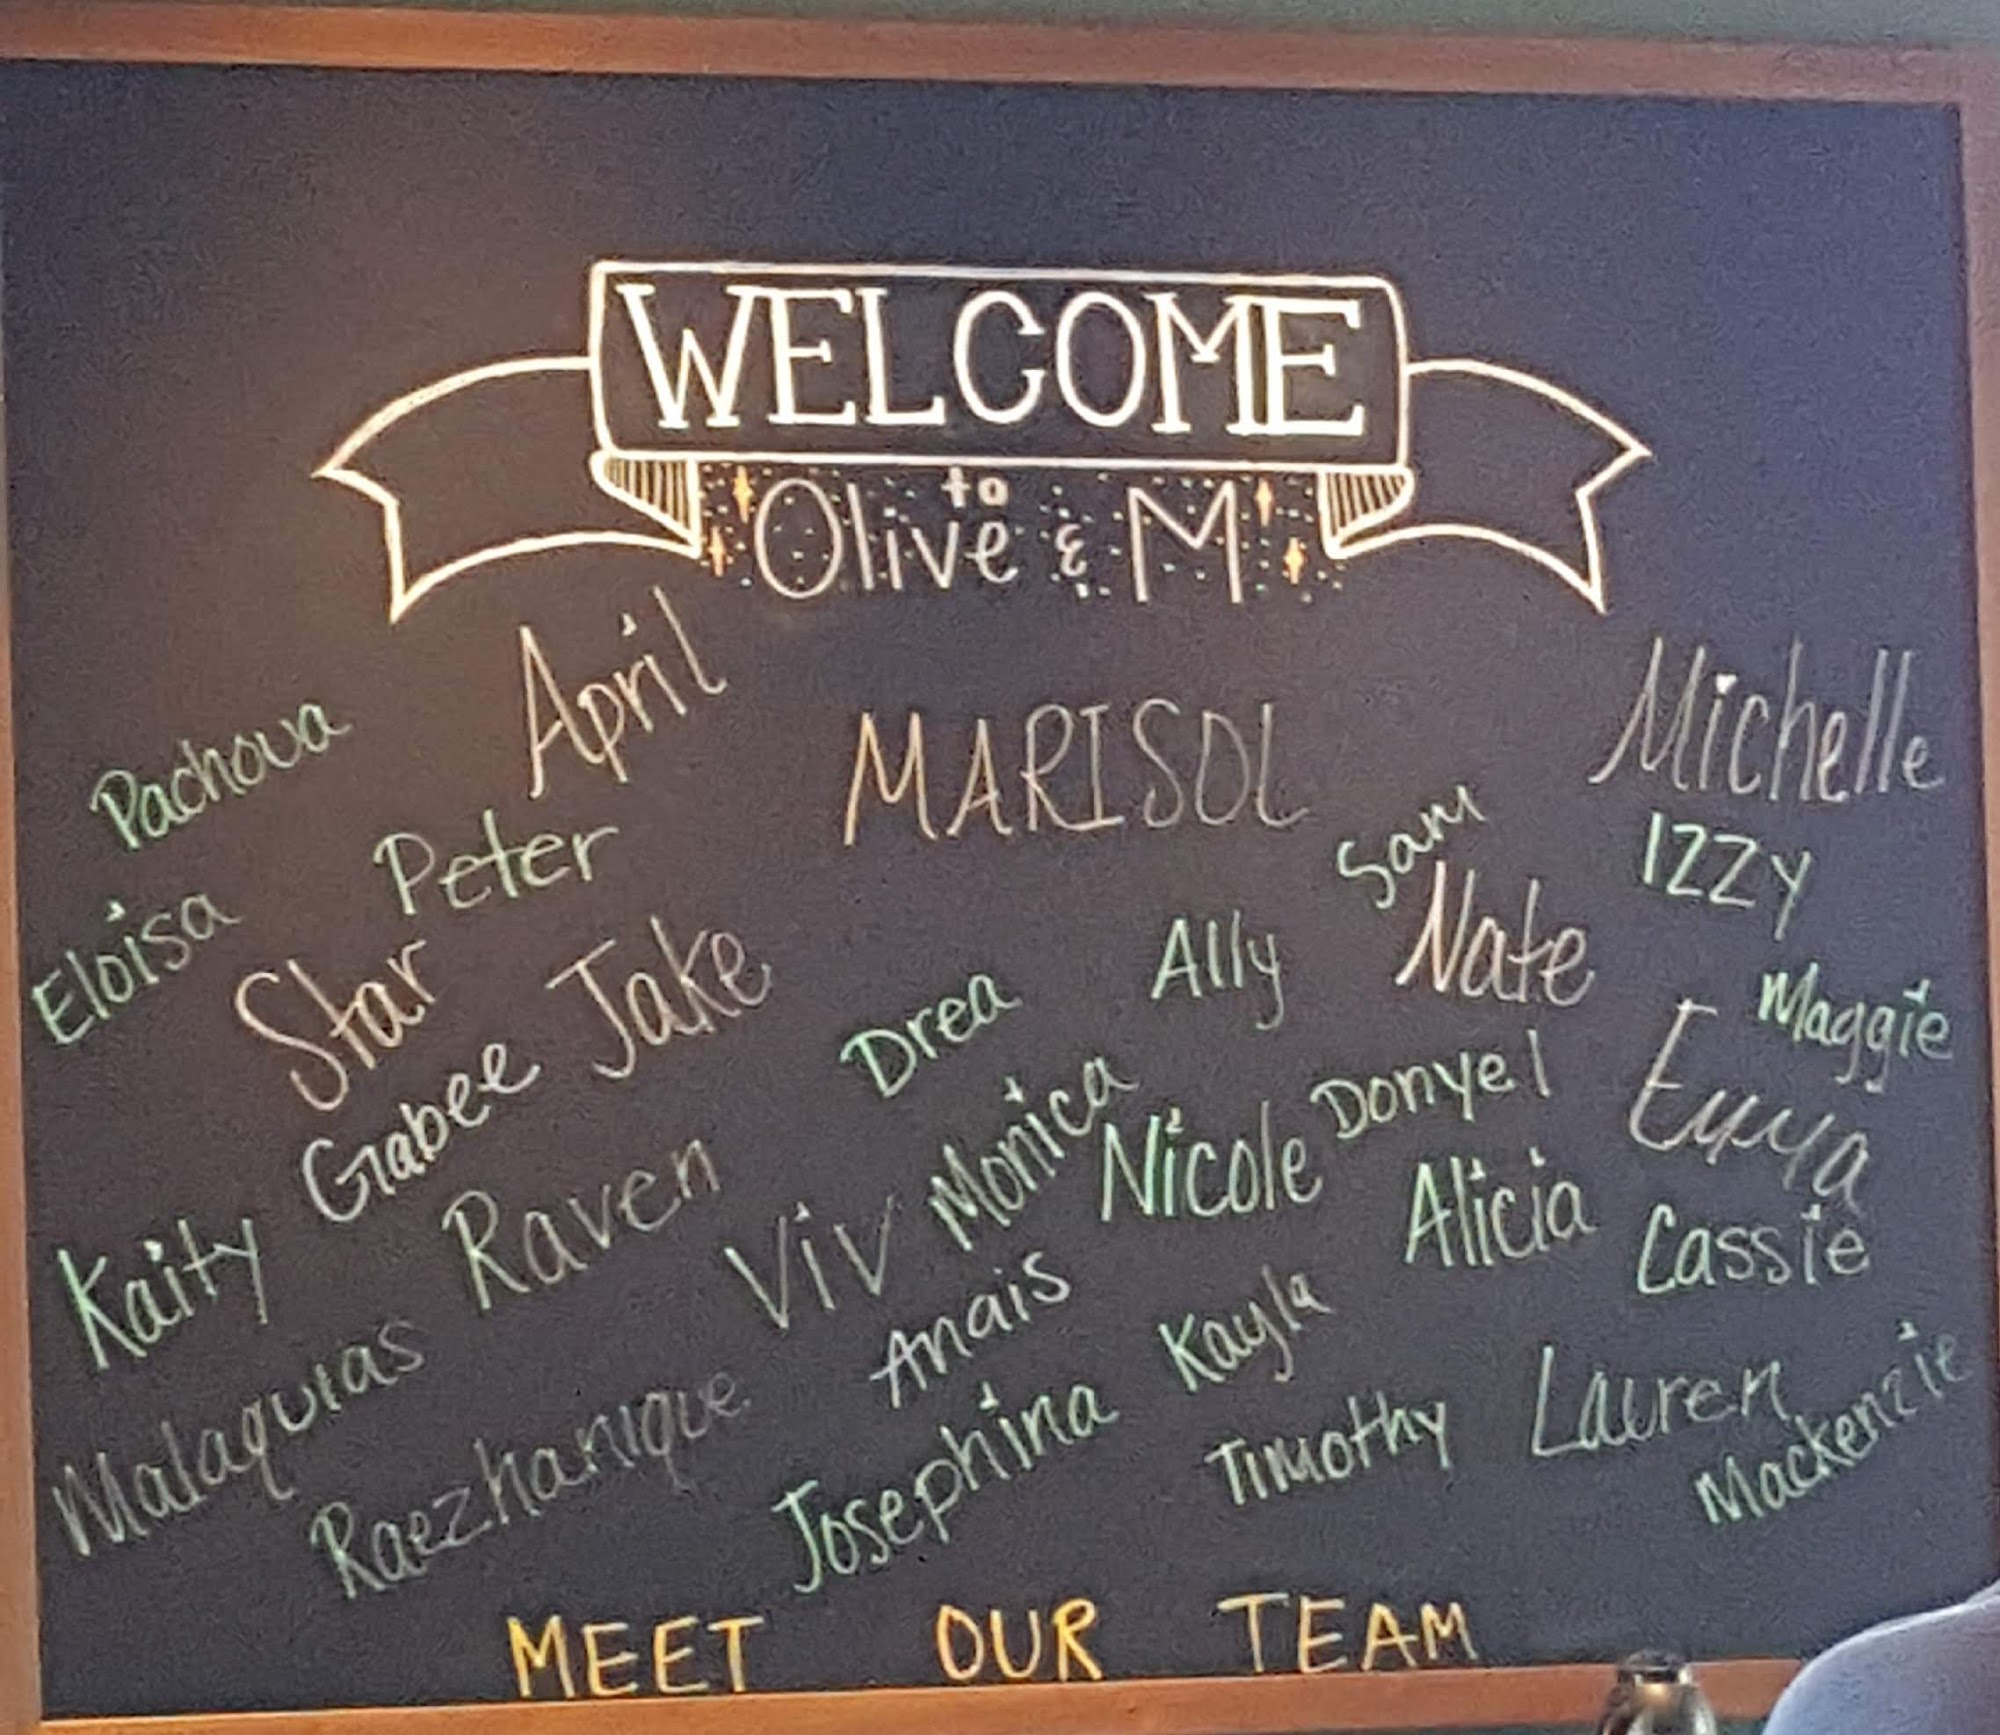 WELCOME
to
Olive & M
April
Michelle
Pachova
MARISOL
Peter
Sam
IZZY
Eloisa
Star
Jake
Drea
Ally
Nate
Maggie
Gabee
Monica
Nicole
Donyel
Emma
Kaity
Raven
Viv
Alicia
Cassie
Anais
Kayla
Malaquias
Raezhanique
Josephina
Timothy
Lauren
Mackenzie
MEET OUR TEAM